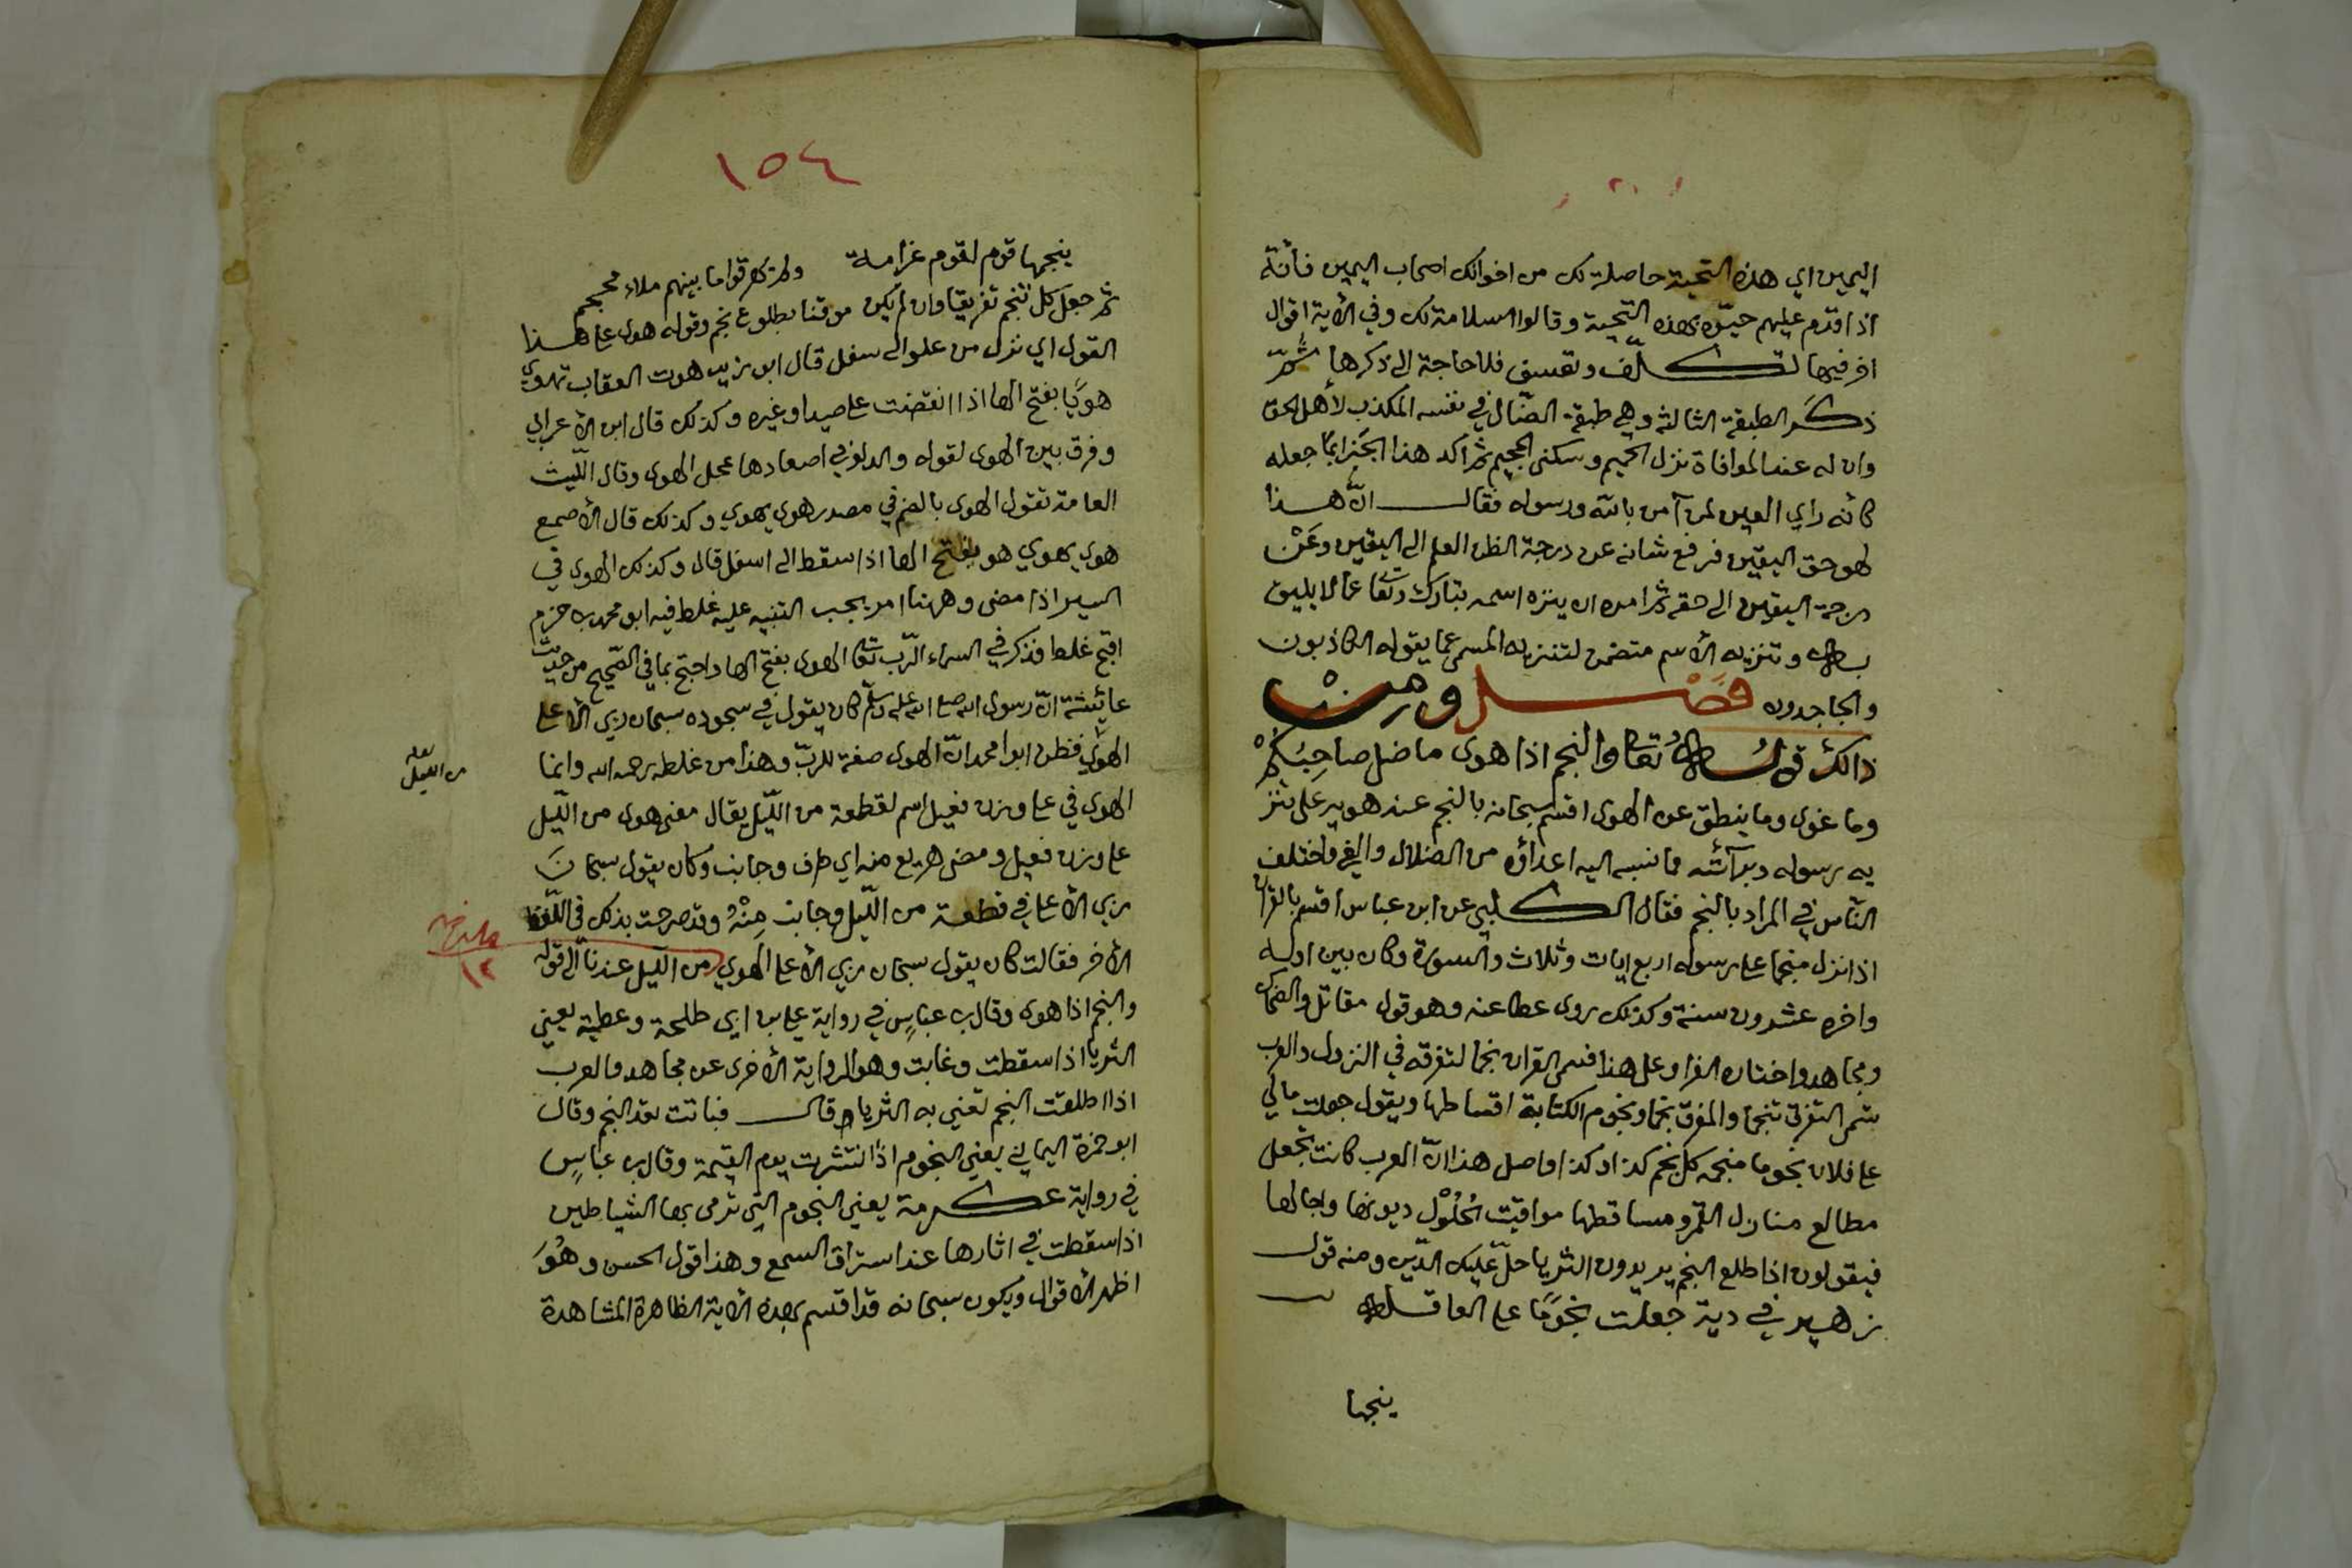 اليمين اي هذه التحية حاصلة لك من اخوانك اصحاب اليمين فانه
اذا قدم عليهم حيّوه بهذه التحية وقالوا السلامة لك وفي الأية اقوال
اخر فيها تكلّف وتعسف فلا حاجة الى ذكرها ثمّ
ذكر الطبقة الثالثة وهي طبقة الضّال في نفسه المكذب لأهل الحق
وان له عند الموافاة نزل الحميم وسكنى الجحيم ثم اكد هذا الجزا بما جعله
كانه راي العين لمن آمن بالله ورسوله فقال انّ هذا
لهو حق اليقين فرفع شانه عن درجة الظن العلم الى اليقين وعَنْ
درجة اليقين الى حقه ثم امره ان ينزه اسمه تبارك وتعا عما لا يليق
به وتنزيه الأسم متضمن لتنزيه المسمى عما يقوله الكاذبون
والجاحدون فصْل ومن
ذالك قوله تعا والنجم اذا هوى ما ضل صاحبُكُمْ
وما غوى وما ينطق عن الهوى اقسم سبحانه بالنجم عند هويه على تنز
يه رسوله وبرآئته مما نسبه اليه اعداؤه من الضلال والغي واختلف
النّاس في المراد بالنجم فقال الكلبي عن ابن عباس اقسم بالقران
اذا نزل منجما على رسوله اربع ايات وثلاث والسورة وكان بين اوله
واخره عشرون سنة وكذلك روى عطا عنه وهو قول مقاتل والضحاك
ومجاهد واختاره الفرا وعلى هذا فسمى القران نجما لتفرقه في النزول والعرب
تسمى التفرق تنجما والمفرق نجما ونجوم الكتابة اقساطها ويقول جعلت مالي
على فلان نجوما منجمة كل نجم كذا وكذا واصل هذا انّ العرب كانت تجعل
مطالع منازل القمر ومساقطها مواقيت لحُلُوْل ديونها واجالها
فيقولون اذا طلع النجم يريدون الثريا حلّ عليك الدّين ومنه قول
زهير في دية جعلت نجومًا على العاقلة
ينجمها
١٥٤
ينجمها قوم لقوم غرامة ولم يهرقوا ما بينهم ملاء محجم
ثم جعل كل تنجم تفريقا وان لم يكن موقتا بطلوع نجم وقوله هوى على هذا
القول اي نزل من علو الى سفل قال ابو زيد هوت العقاب تهوي
هويًا بفتح الها اذا انقضت على صيد او غيره وكذلك قال ابن الأعرابي
وفرق بين الهوى لقوله والدلو في اصعادها عجل الهوى وقال اللّيث
العامة تقول الهوى بالضم في مصدر هوى يهوي وكذلك قال الأصمع
هوى يهوي هو بفتح الها اذا سقط الى اسفل قال وكذلك الهوى في
السير اذا مضى وههنا امر يجب التنبيه عليه غلط فيه ابو محمد بن حزم
اقبح غلط فذكر في اسماء الرّب تعا الهوى بفتح الها واحتج بما في الصّحيح من حديث
عائشة انّ رسول الله صلى الله عليه وسلّم كان يقول في سجوده سبحان ربي الأعلى
الهوي فظن ابوا محمد انّ الهوى صفة للربّ وهذا من غلطه رحمه الله وانما
الهوى في على وزن فعيل اسم لقطعة من اللّيل يقال مضى هوى من اللّيل
على وزن فعيل ومضى هزيع منه اي طرف وجانب وكان يقول سبحان
ربي الأعلى في قطعة من اللّيل وجانب مِنْهُ وقد صرحت بذلك في اللّفظ
الأخر فقالت كان يقول سبحان ربي الأعلى الهوي من الليل عندنا الى قوله
والنجم اذا هوى وقال بن عباسٍ في رواية على بن ابي طلحة وعطية يعني
الثريا اذا سقطت وغابت وهو الرواية الأخرى عن مجاهد والعرب
اذا اطلقت النجم تعني به الثريا قال فباتت تعد النجم وقال
ابو حمزة اليماني يعني النجوم اذا انتثرت يوم القيمة وقال بن عباسٍ
في رواية عكرمة يعني النجوم التي ترمى بها الشياطين
اذا سقطت في اثارها عند استراق السمع وهذا قول الحسن وهُوَ
اظهر الأقوال ويكون سبحانه قد اقسم بهذه الأية الظاهرة المشاهدة
لعله
من الليل
١٢